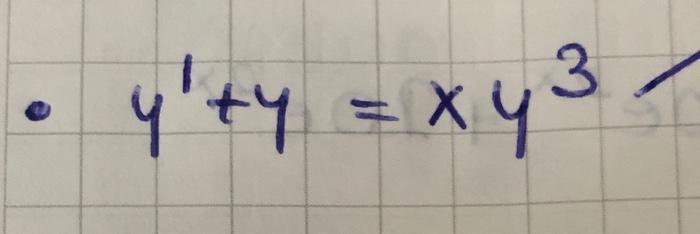 • y' + y = xy³ /